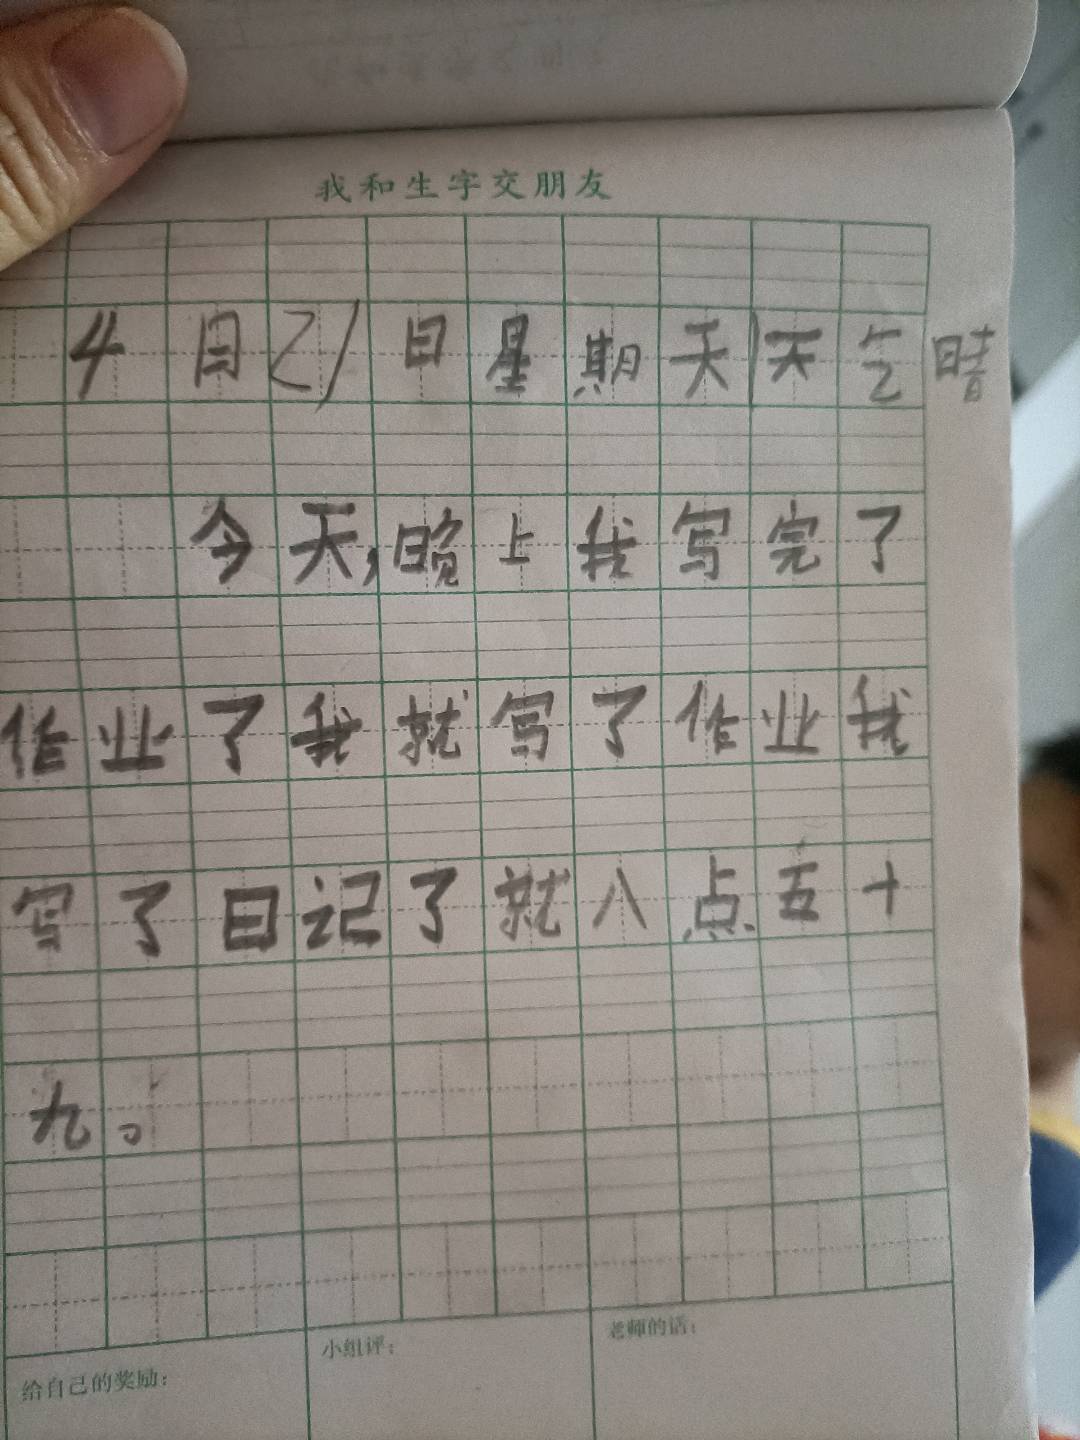 我和生字交朋友
4月21日星期天天气晴
今天,晚上我写完了
作业了我就写了作业我
写了日记了就八点五十
九。
给自己的奖励：
小组评：
老师的话：